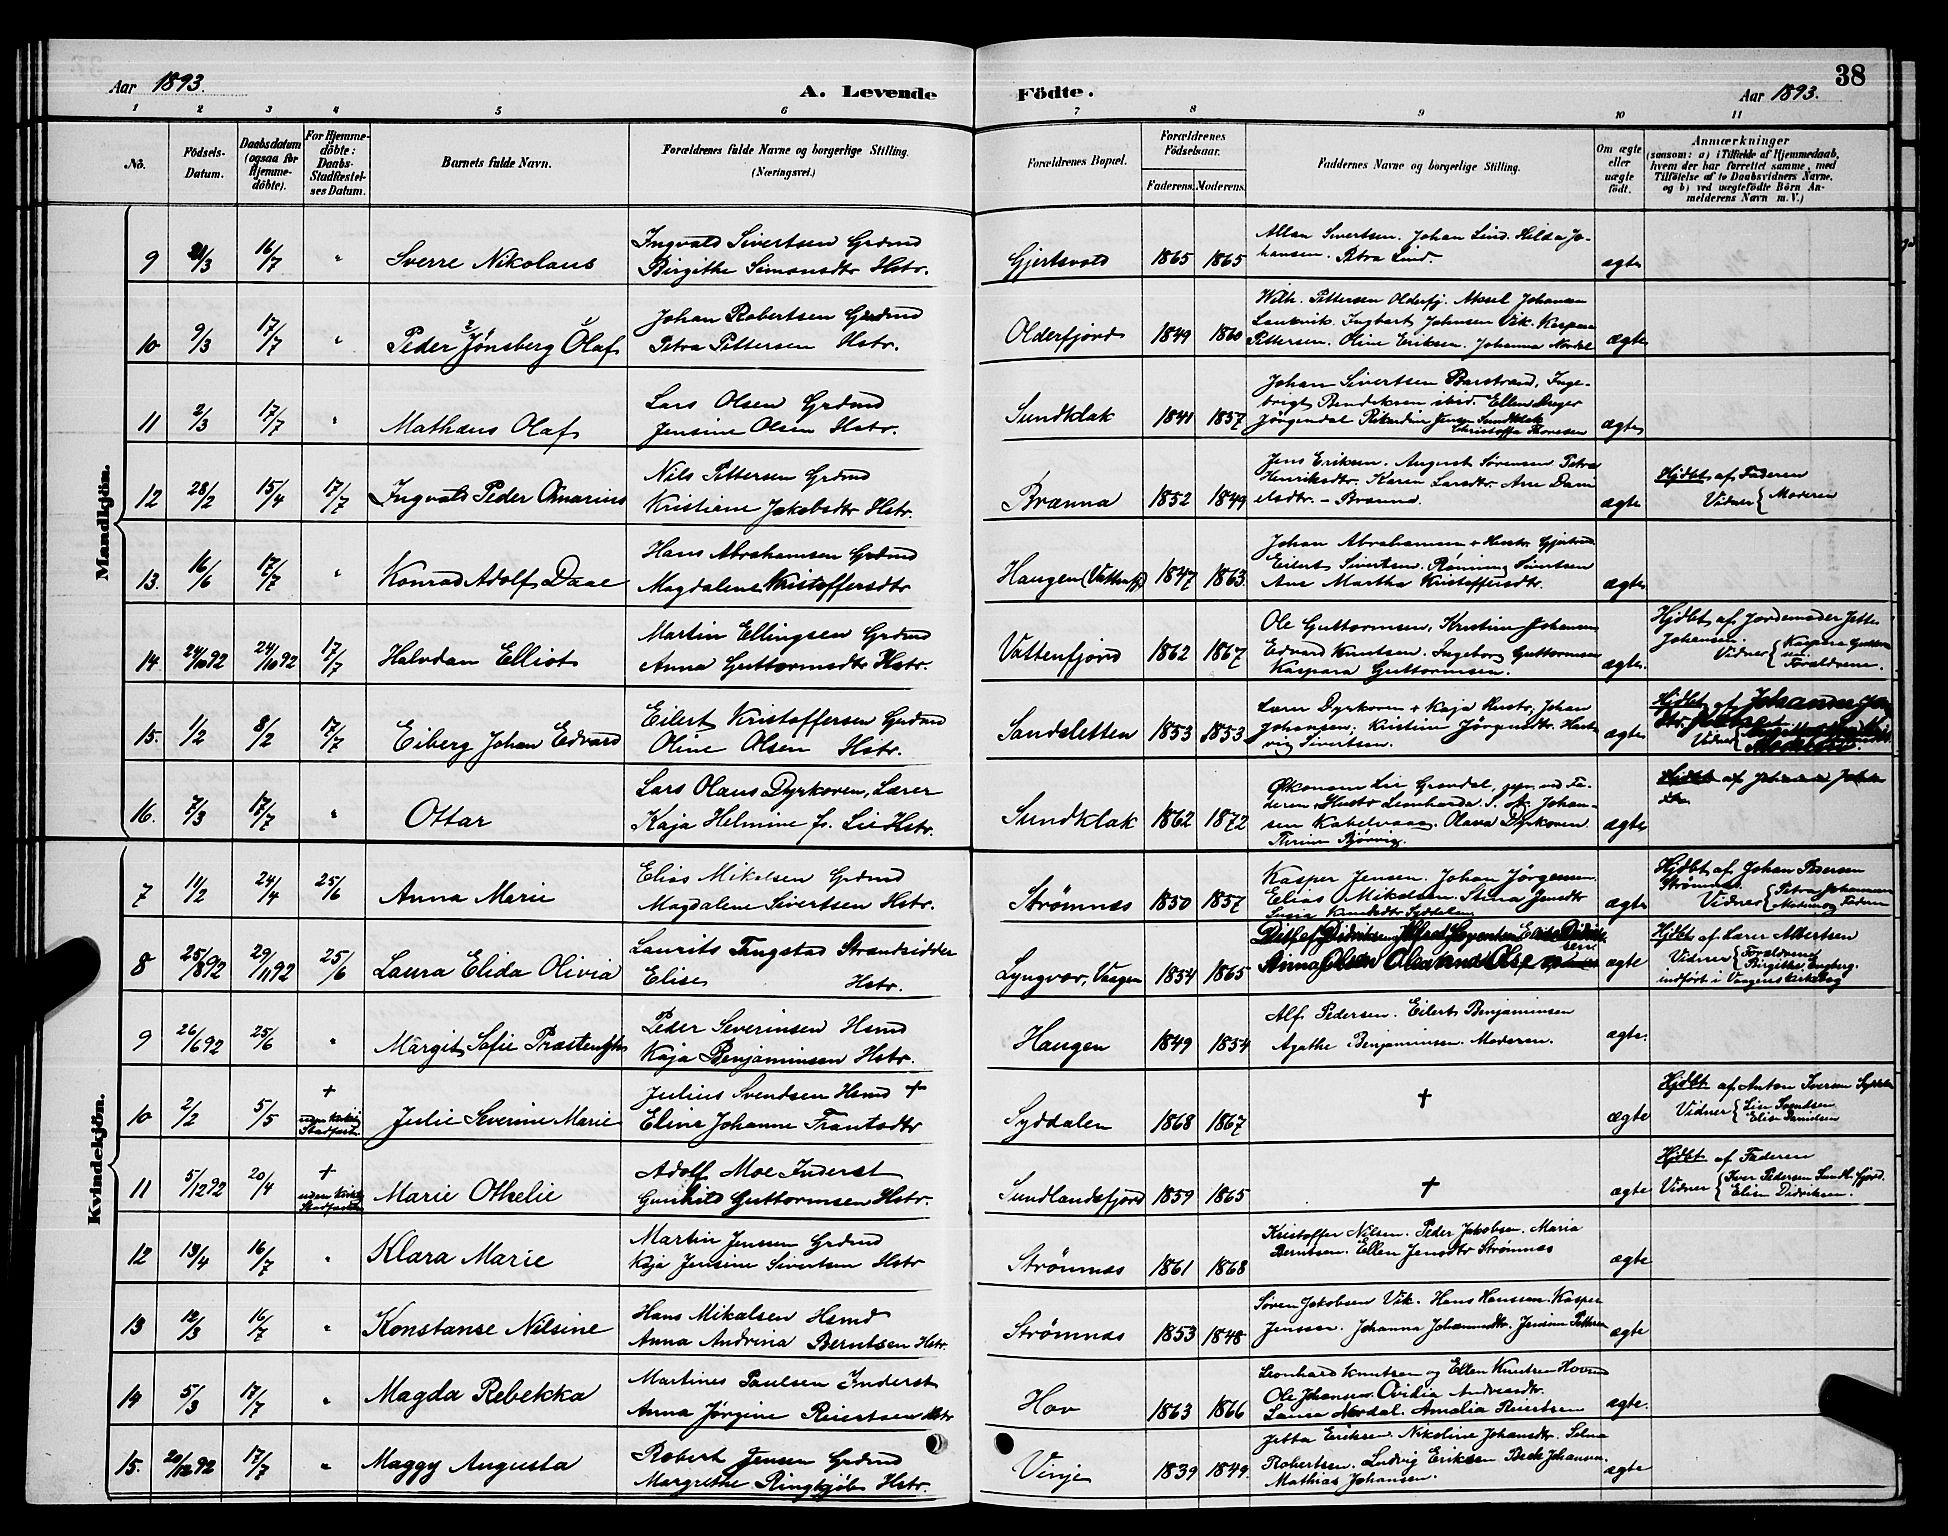 Aar 1893.
A. Levende Födte.
38
Aar 1893.
1 2 3 4 5 6 7 8 9 10 11
No.
Födsels-
Datum.
Daabsdatum
(ogsaa for
Hjemme-
döbte).
For Hjemme-
döbte:
Daabs-
Stadfæstel-
ses Datum.
Barnets fulde Navn.
Forældrenes fulde Navne og borgerlige Stilling.
(Næringsvei.)
Forældrenes Bopæl.
Forældrenes
Födselsaar.
Faderens. Moderens.
Faddernes Navne og borgerlige Stilling.
Om ægte
eller
uægte
födt.
Anmærkninger
(saasom: a) i Tilfælde af Hjemmedaab,
hvem der har forrettet samme, med
Tilföielse af to Daabsvidners Navne,
og b) ved uægtefödte Börn An-
melderens Navn m. V.)
Mandkjön.
9 21/3 16/7 " Sverre Nikolaus
Ingvald Sivertsen Grdmd
Birgithe Simonsdtr Hstr.
Gjertsvold 1865 1865
Allan Sivertsen. Johan Lind. Hilda Jo-
hansen. Petra Lind.
ægte
10 9/3 17/7 " Peder Jönsberg Olaf
Johan Robertsen Grdmd
Petra Pettersen Hstr.
Olderfjord 1849 1860
Wilh. Pettersen Olderfj. Aksel Johansen
Laukvik. Ingbart Johnsen Vik. Kaspara
Pettersen. Oline Eriksen. Johanna Nordal
ægte
11 2/3 17/7 " Mathæus Olaf
Lars Olsen Grdmd
Jensine Olsen Hstr.
Sundklak 1841 1857
Johan Sivertsen Barstrand, Inge-
brigt Bendiksen ibid. Ellen Inger
Jörgensdal Rikardine Jensen Sundklak
Christoffa Thoresen
ægte
12 28/2 15/4 17/7 Ingvald Peder Omarius
Nils Pettersen Grdmd
Kristiene Jakobsdtr Hstr.
Brænna 1852 1849
Jens Eriksen. August Sörensen Petra
Henriksdtr. Karen Larsdtr. Ane Dani
elsdtr. - Brænna
ægte
Hjdbt af Faderen
Vidner { Moderen
13. 16/6 17/7 " Konrad Adolf Daae
Hans Abrahamsen Grdmd
Magdalene Kristoffersdtr
Haugen (Vattenfj) 1847 1863.
Johan Abrahamsen + Hustr Gjertrud
Eilert Sivertsen. Rønnaug Sivertsen
Ane Martha Kristoffersdtr.
ægte
14. 24/10 92 24/10 92 17/7 Halvdan Elliot
Martin Ellingsen Grdmd
Anna Guttormsdtr Hstr.
Vattenfjord 1862 1867
Ole Guttormsen, Kristine Johansen
Edvard Knutsen. Ingeborg Guttormsen
Kaspara Guttormsen.
ægte.
Hjdbt af Jordemoder Jette
Johansen.
Vidner { Kaspara Guttorm
sen.
Forældrene.
15. 1/2 8/2 17/7 Eiberg Johan Edvard
Eilert Kristoffersen Grdmd
Oline Olsen Hstr.
Sandsletten 1853 1853
Lærer Dyrkoren + Kaja Hustr, Johan
Johansen, Kristine Jørgensdtr. Hart
vig Sivertsen.
ægte
Hjdbt af Johanna
Vidner {
16. 7/3 17/7 " Ottar
Lars Olaus Dyrkoren, Lærer
Kaja Helmine f. Lie Hstr.
Sundklak 1862 1872
Økonom Lie Grøndal, repr. ved Fa-
deren + Hustr Leonharda S. A. Johan-
sen Kabelvaag. Olava Dyrkoren
Thrine Bjørvig.
ægte
Kvindekjön.
7 11/2 24/4 25/6 Anna Marie
Elias Mikalsen Grdmd
Magdalene Sivertsen Hstr.
Strømnæs 1850 1857
Kasper Jensen. Johan Jørgensen.
Elias Mikalsen. Stina Jensdtr
Lusia Knudsdtr Syddalen
ægte
Hjdbt af Johan Pedersen
Strømnæs.
Vidner { Petra Johannsen
Moder og Faderen
8 25/8 92 29/11 92 25/6 Laura Elida Olivia
Laurits Tangstad Strandsidder
Elise Hstr.
Lyngvær, Vaagen 1854 1865
ægte
Hjdbt af Lærer Albertsen
Vidner { Forældrene
Birgithe Engberg.
indført i Vaagens kirkebog
9 26/6 92 25/6 " Margit Sofie Præstengh
Peder Severinsen Hsmd
Kaja Benjaminsen Hstr.
Haugen 1849 1854
Alf Pedersen. Eilert Benjaminsen
Agathe Benjaminsen. Moderen.
ægte.
10 2/2 5/5 +
uden kirkelig
Stadfæst Julie Severine Marie
Julius Svendsen Hsmd +
Eline Johanne Trantsdtr
Syddalen 1868 1867
+
ægte
Hjdbt af Anton Iversen Syddalen
Vidner { Lise Svendsen
Elise Danielsen
11 5/12 92 20/4 +
uden kirkelig
Stadfæst Marie Othelie
Adolf Moe Inderst
Gunhild Guttormsen Hstr.
Sundlandsfjord 1859 1865
+
ægte
Hjdbt af Faderen
Vidner { Iver Pedersen Sundl.fjord.
Elise Didriksen.
12 13/4 16/7 " Klara Marie
Martin Jensen Grdmd
Kaja Jensine Sivertsen Hstr
Strømnæs 1861 1868
Kristoffer Nilsen. Peder Jakobsen. Maria
Berntsen. Ellen Jensdtr Strømnæs
ægte
13 12/3 16/7 " Konstanse Nilsine
Hans Mikalsen Hsmd
Anna Andrina Berntsen Hstr.
Strømnæs 1853 1848
Søren Jakobsen Vik. Hans Hansen. Kasper
Jensen. Johanna Johannesdtr. Jensine Petters
ægte
14 5/3 17/7 " Magda Rebekka
Martines Paulsen Inderst
Anna Jörgine Reiertsen Hstr
Hov 1863 1866
Leonhard Knutsen og Ellen Knutsen Hovsund
Ole Johansen. Ovidia Andreasdtr.
Laura Nordal. Amalia Reiertsen
ægte.
15. 20/12 92 17/7 " Maggy Augusta
Robert Jensen Grdmd
Margrethe Ringkjøb Hstr.
Vinje 1839 1849.
Jetta Eriksen. Nikoline Johansdtr. Selma
Robertsen. Ludvig Eriksen Beck Johansen.
Mathias Johansen.
ægte